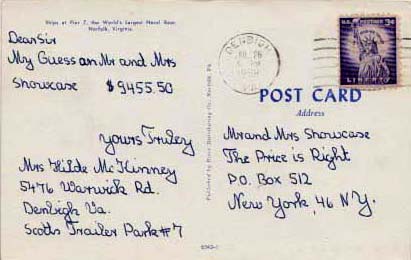 Ships at Pier 7, the World's Largest Naval Base
Norfolk, Virginia.
Dear Sir
My Guess on Mr and Mrs
Showcase $9455.50
yours Truley
Mrs Hilde McKinney
5476 Warwick Rd.
Denbigh Va.
Scotts Trailer Park #7
DENBIGH
VA.
U.S. POSTAGE 3¢
LIBERTY
POST CARD
Address
Mr and Mrs Showcase
The Price is Right
P.O. Box 512
New York, 46 N.Y.